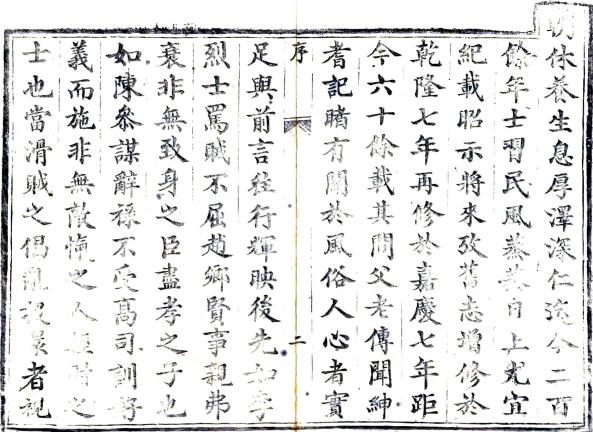 朝休養生息厚澤深仁迄今二百
餘年士習民風蒸蒸日上尤宜
紀載昭示將來攷舊志增修於
乾隆七年再修於嘉慶七年距
今六十餘載其間父老傳聞紳
耆記睹有關於風俗人心者實
序 二
足與前言往行輝映後先如李
烈士罵賊不屈趙鄉賢事親弗
衰非無致身之臣盡孝之子也
如陳叅謀辭祿不受高司訓好
義而施非無敵愾之人 之
士也當滑賊之倡亂 者視